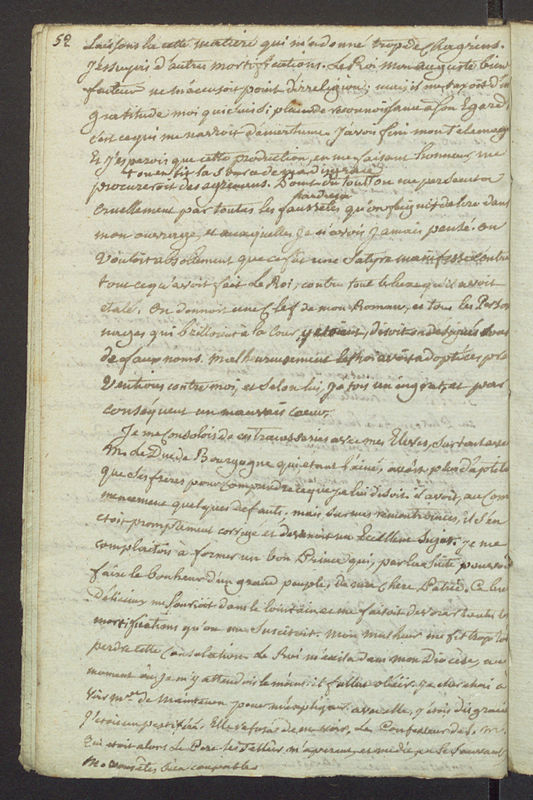 52
Laissons la cette matiere qui m'a donné trop de Chagrins.
J'essuyois d'autres mortifications. Le Roi mon auguste bien
faiteur ne m'accusoit point d'irreligion; mais il me taxoit d'in
gratitude moi qui étois si plein de reconnoissance à son Egard;
c'est ce qui me navroit d'amertume. J'avois fini mon Telemaque
Et j'esperois que cette production, en me faisant honneur, me
procureroit des agremens. Point du tout. On me persecuta
cruellement par toutes les faussetés qu'on feignit de lire dans
mon ouvrage, et auxquelles je n'avois jamais pensé. on
vouloit absolument que ce fut une Satyre manifeste contre
tout ce qu'avoit fait le Roi, contre tout le beau qu'il avoit
étalé. On donnoit une Clef de mon Roman, et tous les Person
nages qui brilloient à la Cour, y etoient, disoit on, designés sous
de faux noms. malheureusement le Roi avoit adopté ces pré
ventions contre moi, et selon lui, j'etois un ingrat, et par
conséquent un mauvais coeur.
Je me consolois de ces traverses avec mes Eleves, surtout avec
M. le Duc de Bourgogne qui etant l'ainé, avoit plus d'aptitude
que ses freres pour comprendre ce que je lui disois. il avoit, au Com
mencement quelques defauts. mais sur mes remontrances, il s'en
etoit promptement corrigé et devenoit un Excellent Sujet. je me
complaisois à former un bon Prince qui, par la suite pourroit
faire le bonheur d'un grand peuple, de ma Chere Patrie. Ce but
délicieux me sourioit dans le lointain et me faisoit devorer toutes les
mortifications qu'on me suscitoit. mon malheur me fit trop tot
perdre cette Consolation. Le Roi m'exila dans mon Diocèse, au
moment où je m'y attendois le moins. il fallut obéir. je cherchai à
voir Mme. de Maintenon pour m'expliquer avec elle. j'étois disgracié
J'etois un pestiféré. Elle refusa de me voir. Le Confesseur de S. M.
qui etoit alors le Pere le Tellier m'aperçut et me dit en se sauvant
M. vous êtes bien coupable